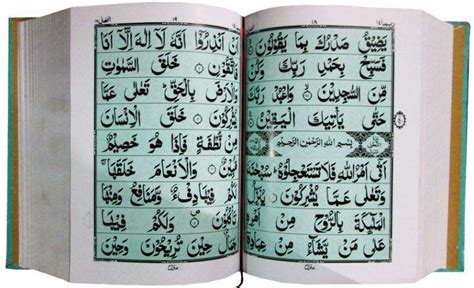 يَضِيْقُ صَدْرُكَ بِمَا يَقُوْلُوْنَ
فَسَبِّحْ بِحَمْدِ رَبِّكَ وَكُنْ
مِّنَ السّٰجِدِيْنَ وَاعْبُدْ رَبَّكَ
حَتّٰى يَاْتِيَكَ الْيَقِيْنُ
بِسْمِ اللّٰهِ الرَّحْمٰنِ الرَّحِيْمِ
اَتٰٓى اَمْرُ اللّٰهِ فَلَا تَسْتَعْجِلُوْهُ
وَتَعٰلٰى عَمَّا يُشْرِكُوْنَ
الْمَلٰٓئِكَةَ بِالرُّوْحِ مِنْ
عَلٰى مَنْ يَّشَآءُ مِنْ عِبَادِهٖٓ
اَنْ اَنْذِرُوْٓا اَنَّهٗ لَآ اِلٰهَ اِلَّآ اَنَا
فَاتَّقُوْنِ خَلَقَ السَّمٰوٰتِ
وَالْاَرْضَ بِالْحَقِّ تَعٰلٰى عَمَّا
يُشْرِكُوْنَ خَلَقَ الْاِنْسَانَ
مِنْ نُّطْفَةٍ فَاِذَا هُوَ خَصِيْمٌ
مُّبِيْنٌ وَالْاَنْعَامَ خَلَقَهَا
فِيْهَا دِفْءٌ وَّمَنَافِعُ وَمِنْهَا
وَلَكُمْ فِيْهَا
جَمَالٌ حِيْنَ تُرِيْحُوْنَ وَحِيْنَ